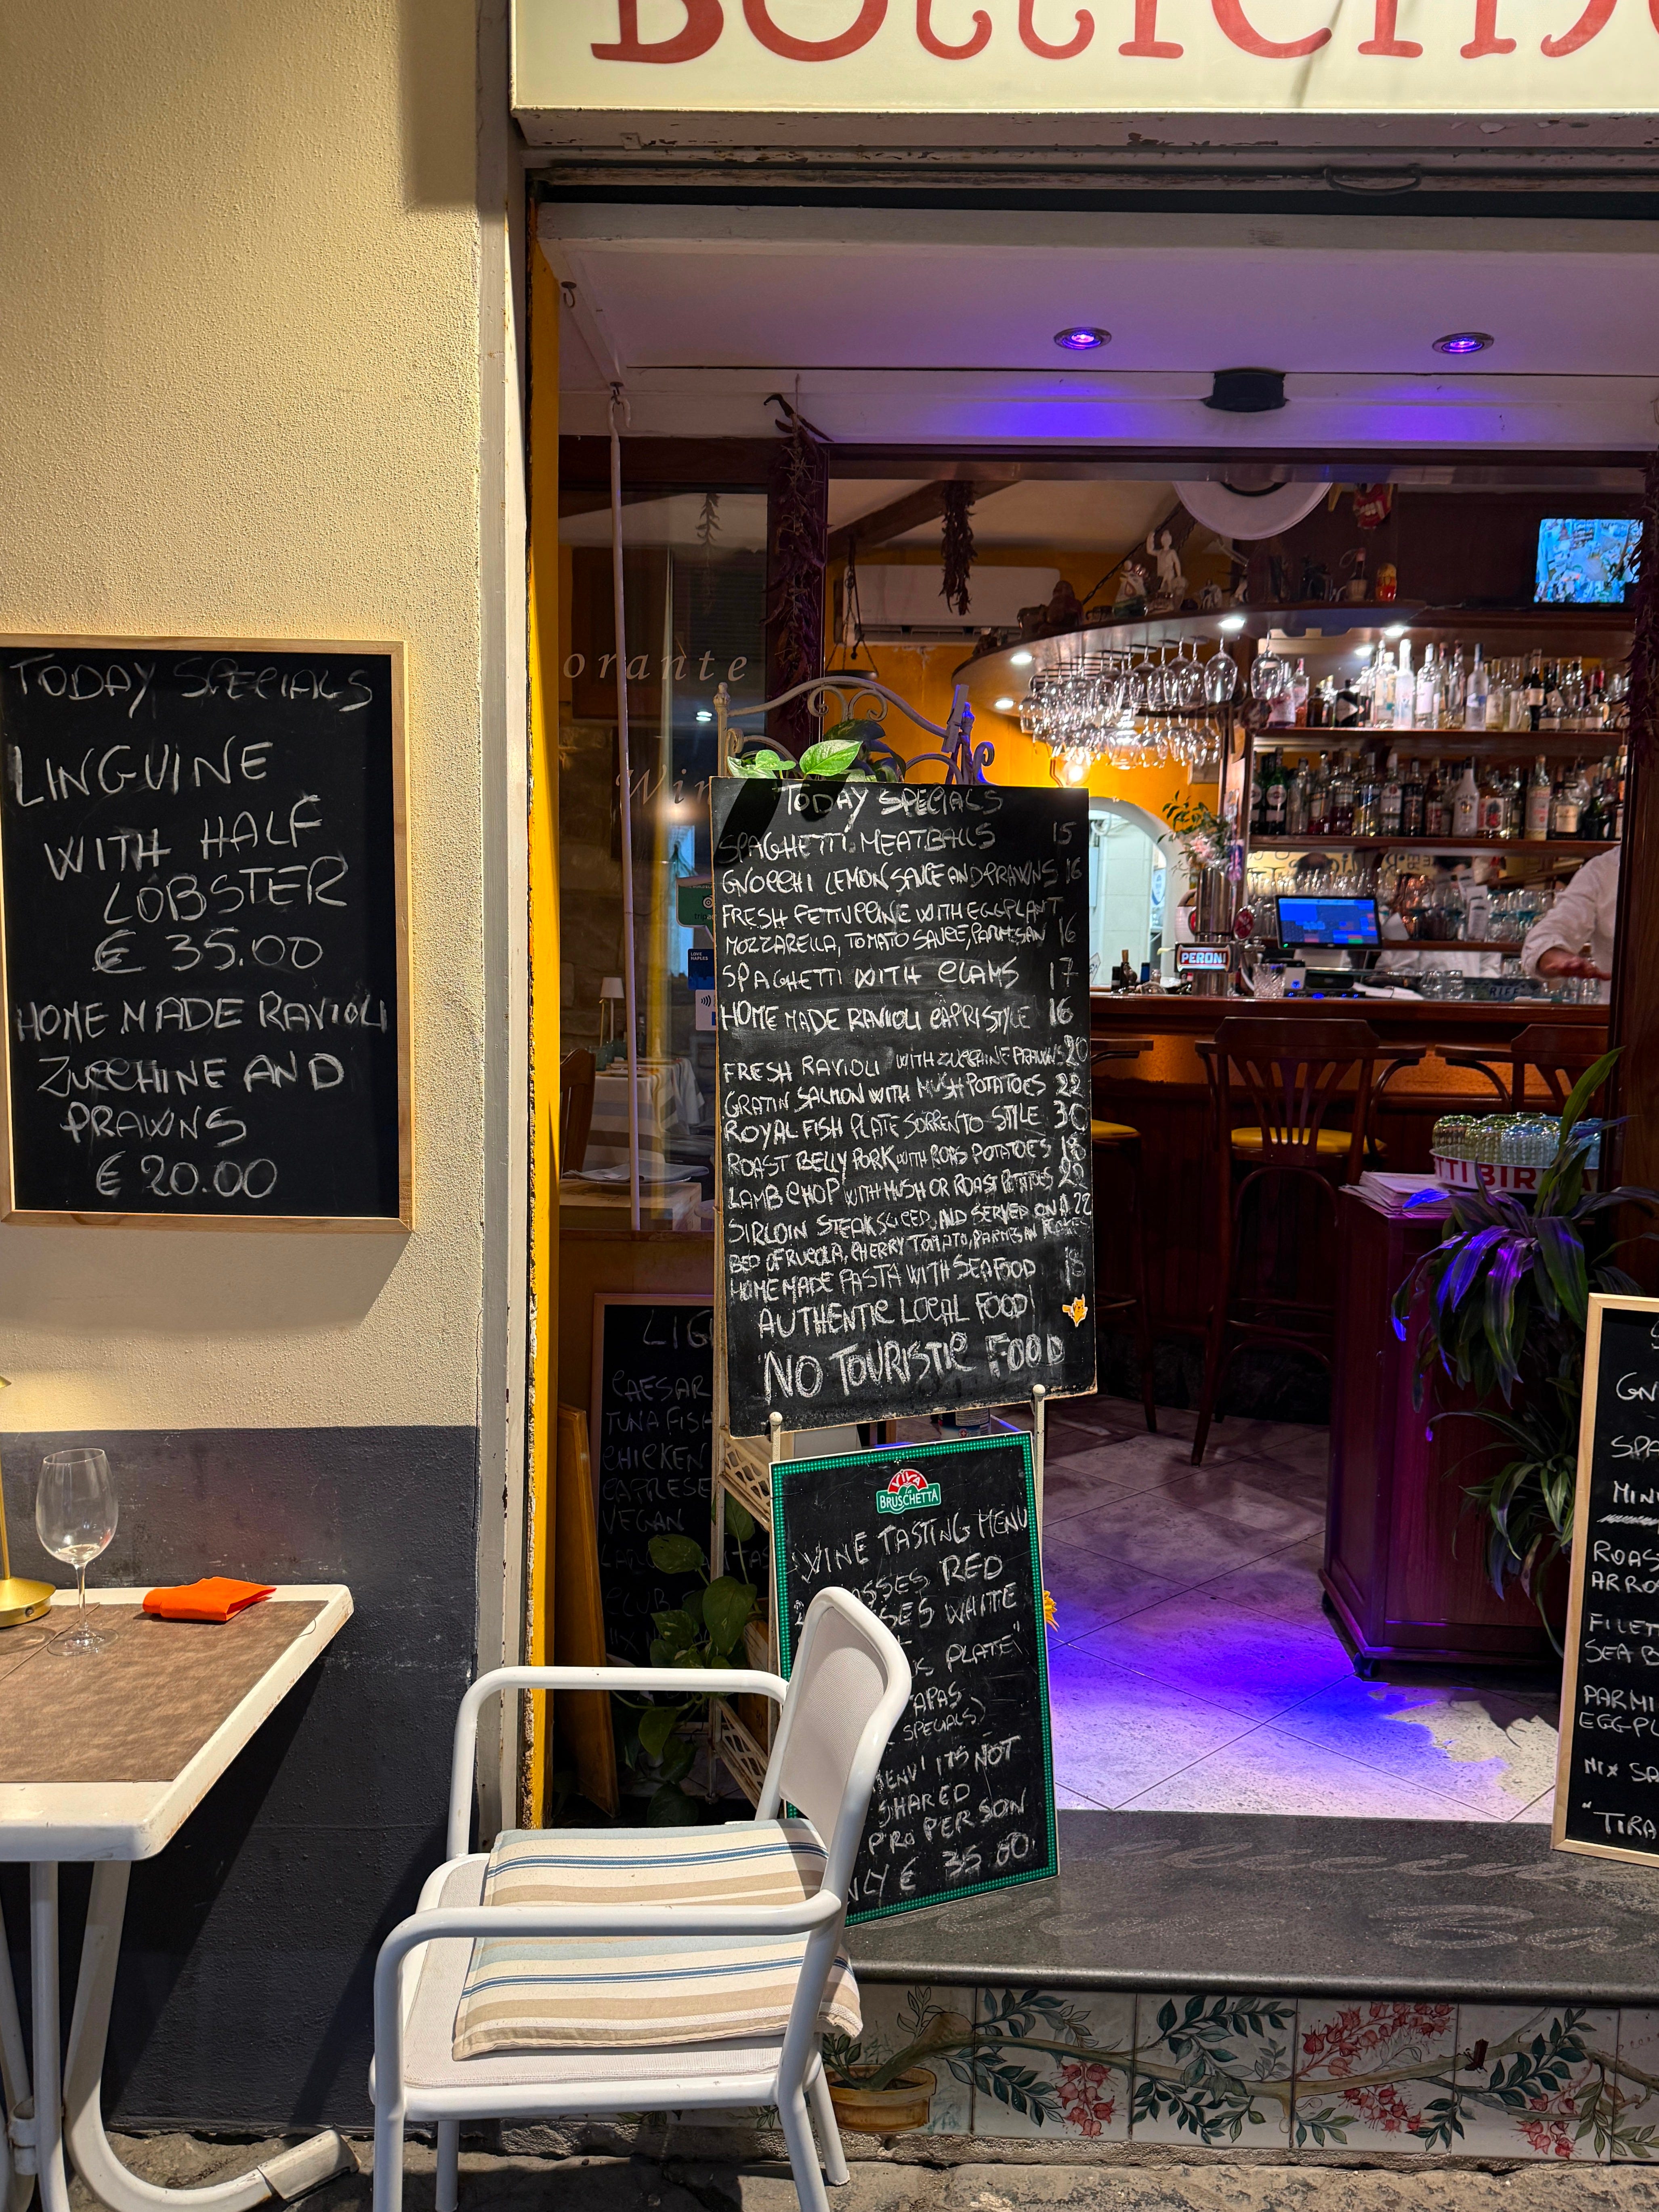 TODAY SPECIALS
LINGUINE
WITH HALF
LOBSTER
€ 35.00
HOME MADE RAVIOLI
ZUCCHINE AND
PRAWNS
€ 20.00
orante
Win
TODAY SPECIALS
SPAGHETTI MEATBALLS 15
GNOCCHI LEMON SAUCE AND PRAWNS 16
FRESH FETTUCCINE WITH EGGPLANT
MOZZARELLA, TOMATO SAUCE, PARMESAN 16
SPAGHETTI WITH CLAMS 17
HOME MADE RAVIOLI CAPRI STYLE 16
FRESH RAVIOLI WITH ZUCCHINE PRAWNS 20
GRATIN SALMON WITH MUSH POTATOES 22
ROYAL FISH PLATE SORRENTO STYLE 30
ROAST BELLY PORK WITH ROAS POTATOES 18
LAMB CHOP WITH MUSH OR ROAST POTATOES
SIRLOIN STEAK SLICED, AND SERVED ON A 22
BED OF RUCOLA, CHERRY TOMATO, PARMESAN
HOME MADE PASTA WITH SEAFOOD 18
AUTHENTIC LOCAL FOOD!
NO TOURISTIC FOOD
LIG
CAESAR
TUNA FISH
CHICKEN
CAPRESE
VEGAN
CLUB
VIVA
la
BRUSCHETTA
WINE TASTING MENU
2 ASSES RED
SES WHITE
PLATE"
APAS
SPECIALS)
MENU ITS NOT
SHARED
PRO PERSON
NLY € 35.00
PERONI
LOVE
NAPLES
TI BIRRA
GN
SPA
MIN
ROAS
ARRO
FILET
SEA B
PARMI
EGGPL
MIX SA
"TIRA